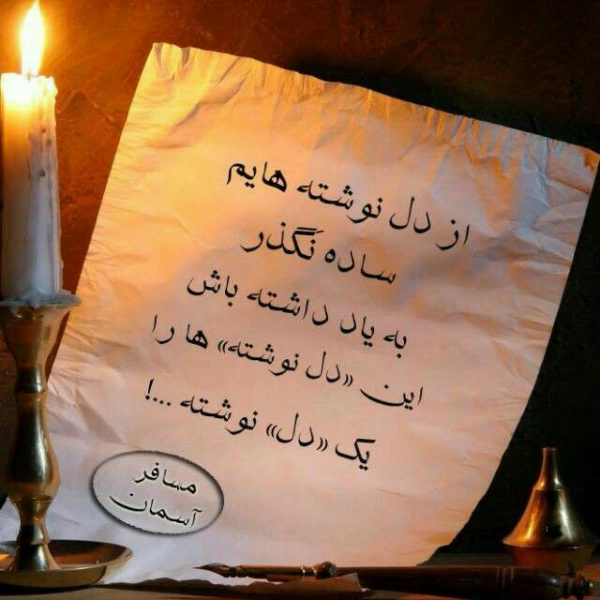 از دل نوشته هایم
ساده نَگذر
به یاد داشته باش
این «دل نوشته» ها را
یک «دل» نوشته ...!
مسافر
آسمان